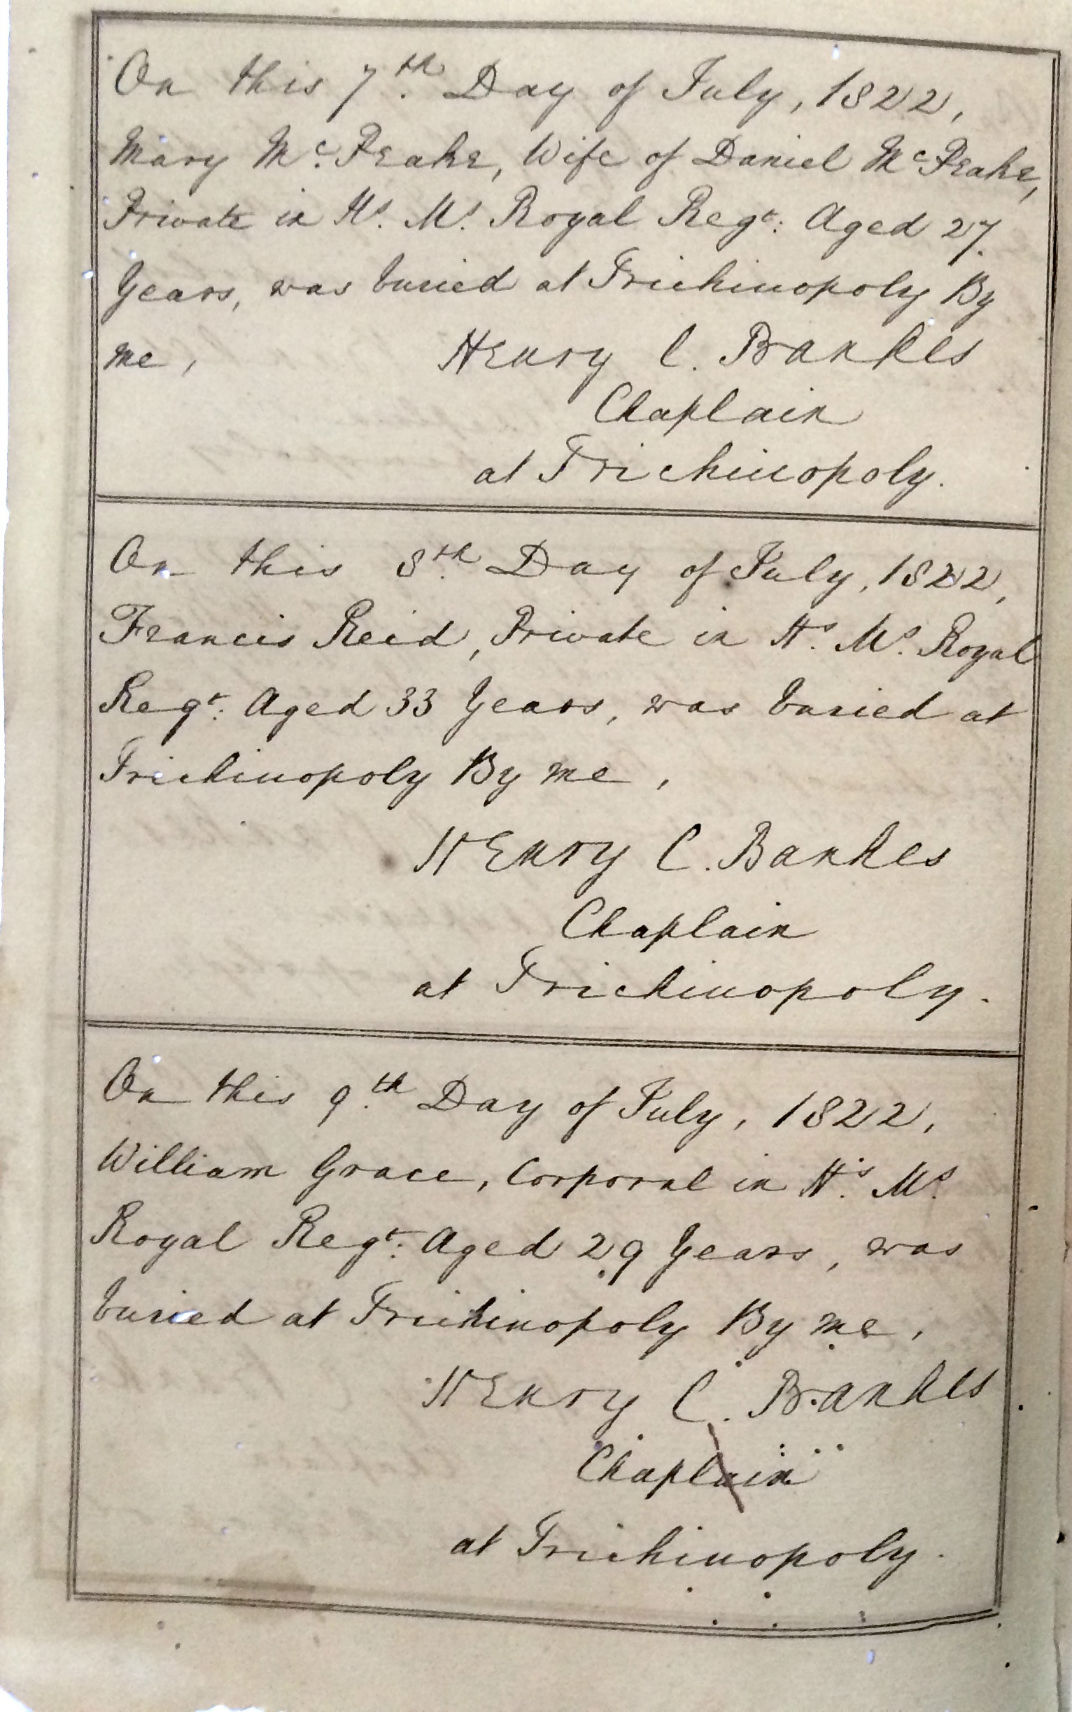 On this 7th Day of July, 1822,
Mary McPeake, Wife of Daniel McPeake,
Private in Hs. Ms. Royal Regt: Aged 27
Years, was buried at Trichinopoly By
me, Henry C. Bankes
Chaplain
at Trichinopoly.
On this 8th Day of July, 1822,
Francis Reid, Private in Hs. Ms. Royal
Regt: Aged 33 Years, was buried at
Trichinopoly By me,
Henry C. Bankes
Chaplain
at Trichinopoly.
On this 9th Day of July, 1822,
William Grace, Corporal in Hs. Ms.
Royal Regt: Aged 29 Years, was
buried at Trichinopoly By me,
Henry C. Bankes
Chaplain
at Trichinopoly.